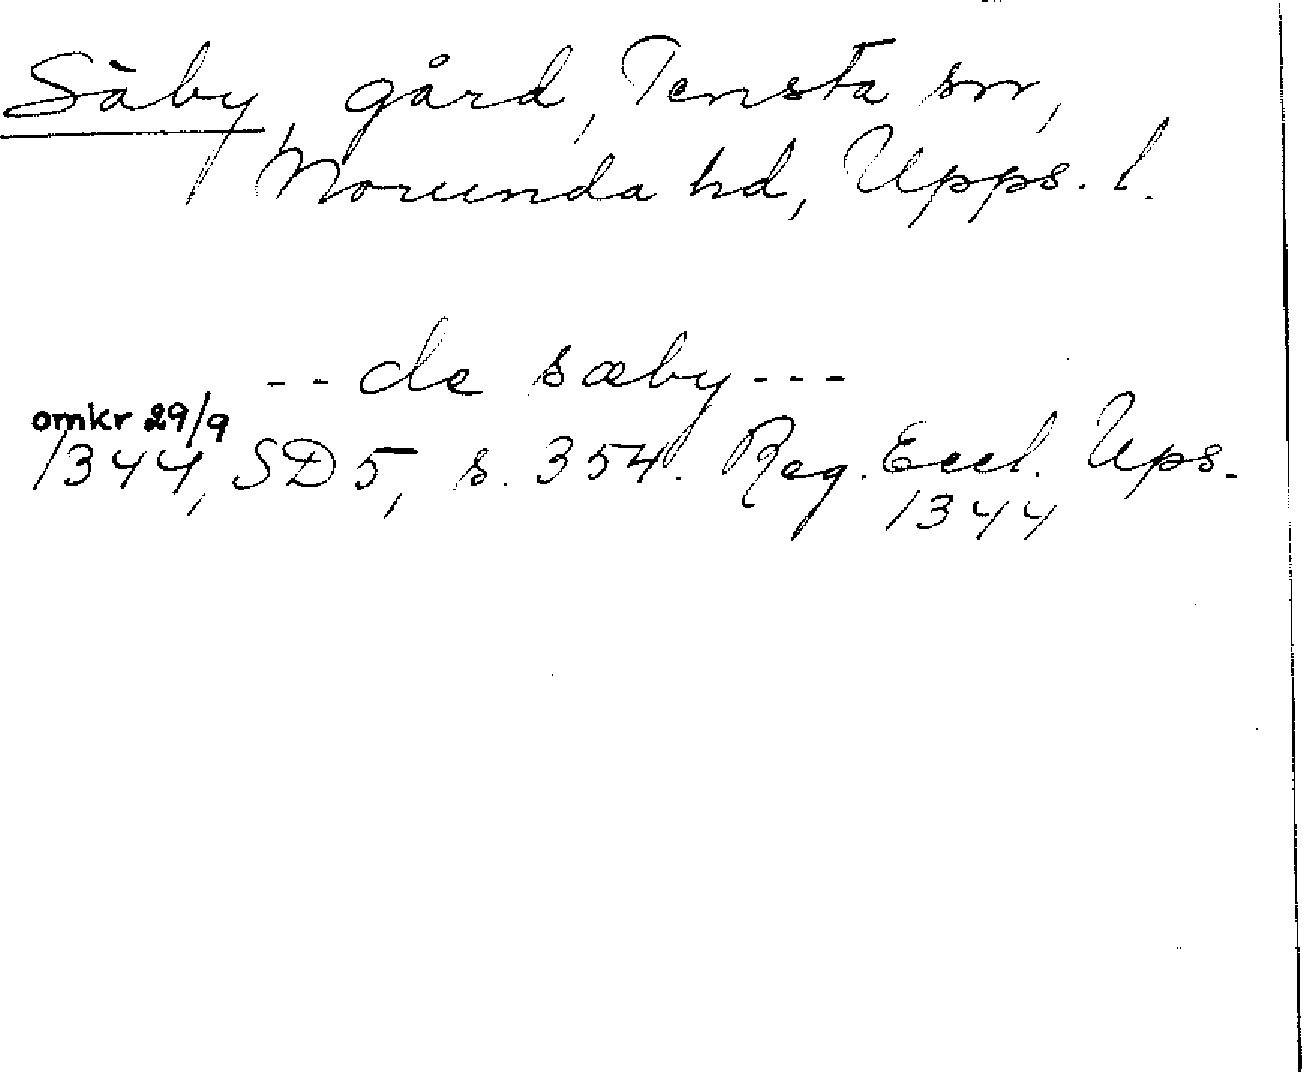 Säby, gård, Tensta sn,
Norunda hd, Upps. l.
-- de sæby ---
omkr 29/9
1344, SD 5, s. 354. Reg. Eccl. Ups.
1344